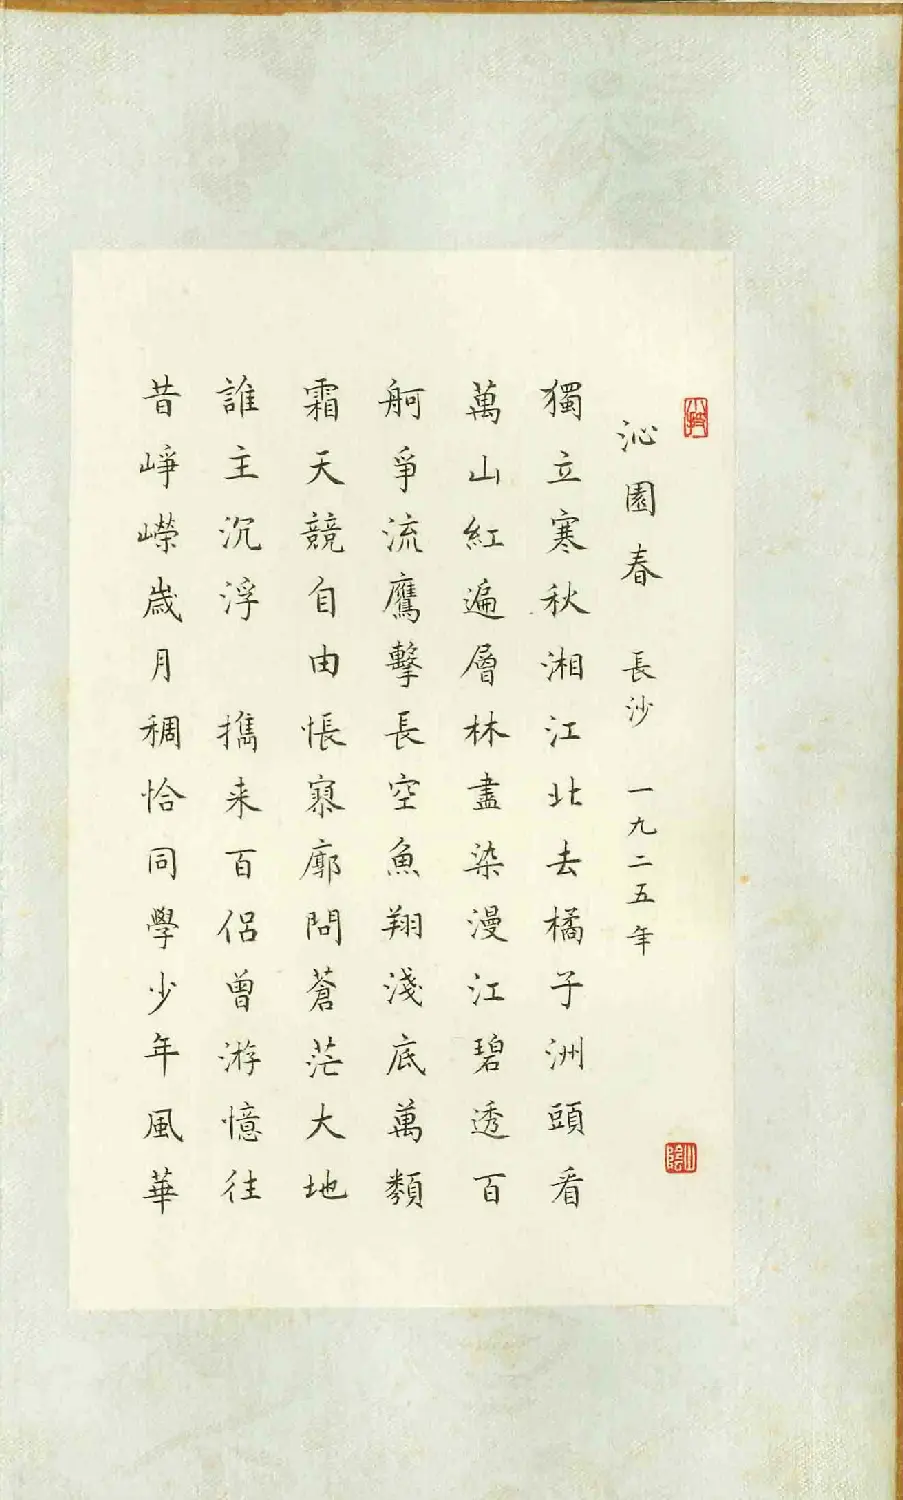 沁園春 長沙 一九二五年
獨立寒秋湘江北去橘子洲頭看
萬山紅遍層林盡染漫江碧透百
舸爭流鷹擊長空魚翔淺底萬類
霜天競自由悵寥廓問蒼茫大地
誰主沉浮 攜来百侣曾游憶往
昔崢嶸歲月稠恰同學少年風華
山陰